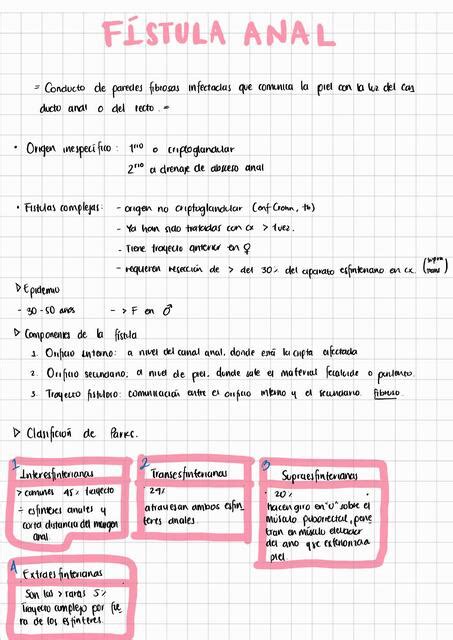 FÍSTULA ANAL
= Conducto de paredes fibrosas infectadas que comunica la piel con la luz del con
ducto anal o del recto. =
• Origen inespecífico: 1rio o criptoglandular
2rio a drenaje de absceso anal
• Fístulas complejas: - origen no criptoglandular (enf Crohn, tb)
- Ya han sido tratadas con cx > 1 vez.
- Tiene trayecto anterior en ♀
- requieren resección de > del 30% del aparato esfinteriano en cx. (supra trans)
▷ Epidemio
- 30-50 años - > F en ♂
▷ Componentes de la fístula
1. Orificio interno: a nivel del canal anal, donde está la cripta afectada
2. Orificio secundario: a nivel de piel, donde sale el material fecaloide o purulento.
3. Trayecto fistuloso: comunicación entre el orificio interno y el secundario. fibroso
▷ Clasificion de Parks.
1
Interesfinterianas
> comunes 45% trayecto
÷ esfinteres anales y
corta distancia del margen
anal.
2
Transesfinterianas
• 29%
atraviesan ambos esfin
teres anales.
3
Supraesfinterianas
• 20%
hacen giro en "U" sobre el
músculo puborrectal, pene
tran en músculo elevador
del ano que exterioriza a
piel.
4
Extraesfinterianas
Son las > raras 5%
Trayecto complejo por fue
ra de los esfinteres.